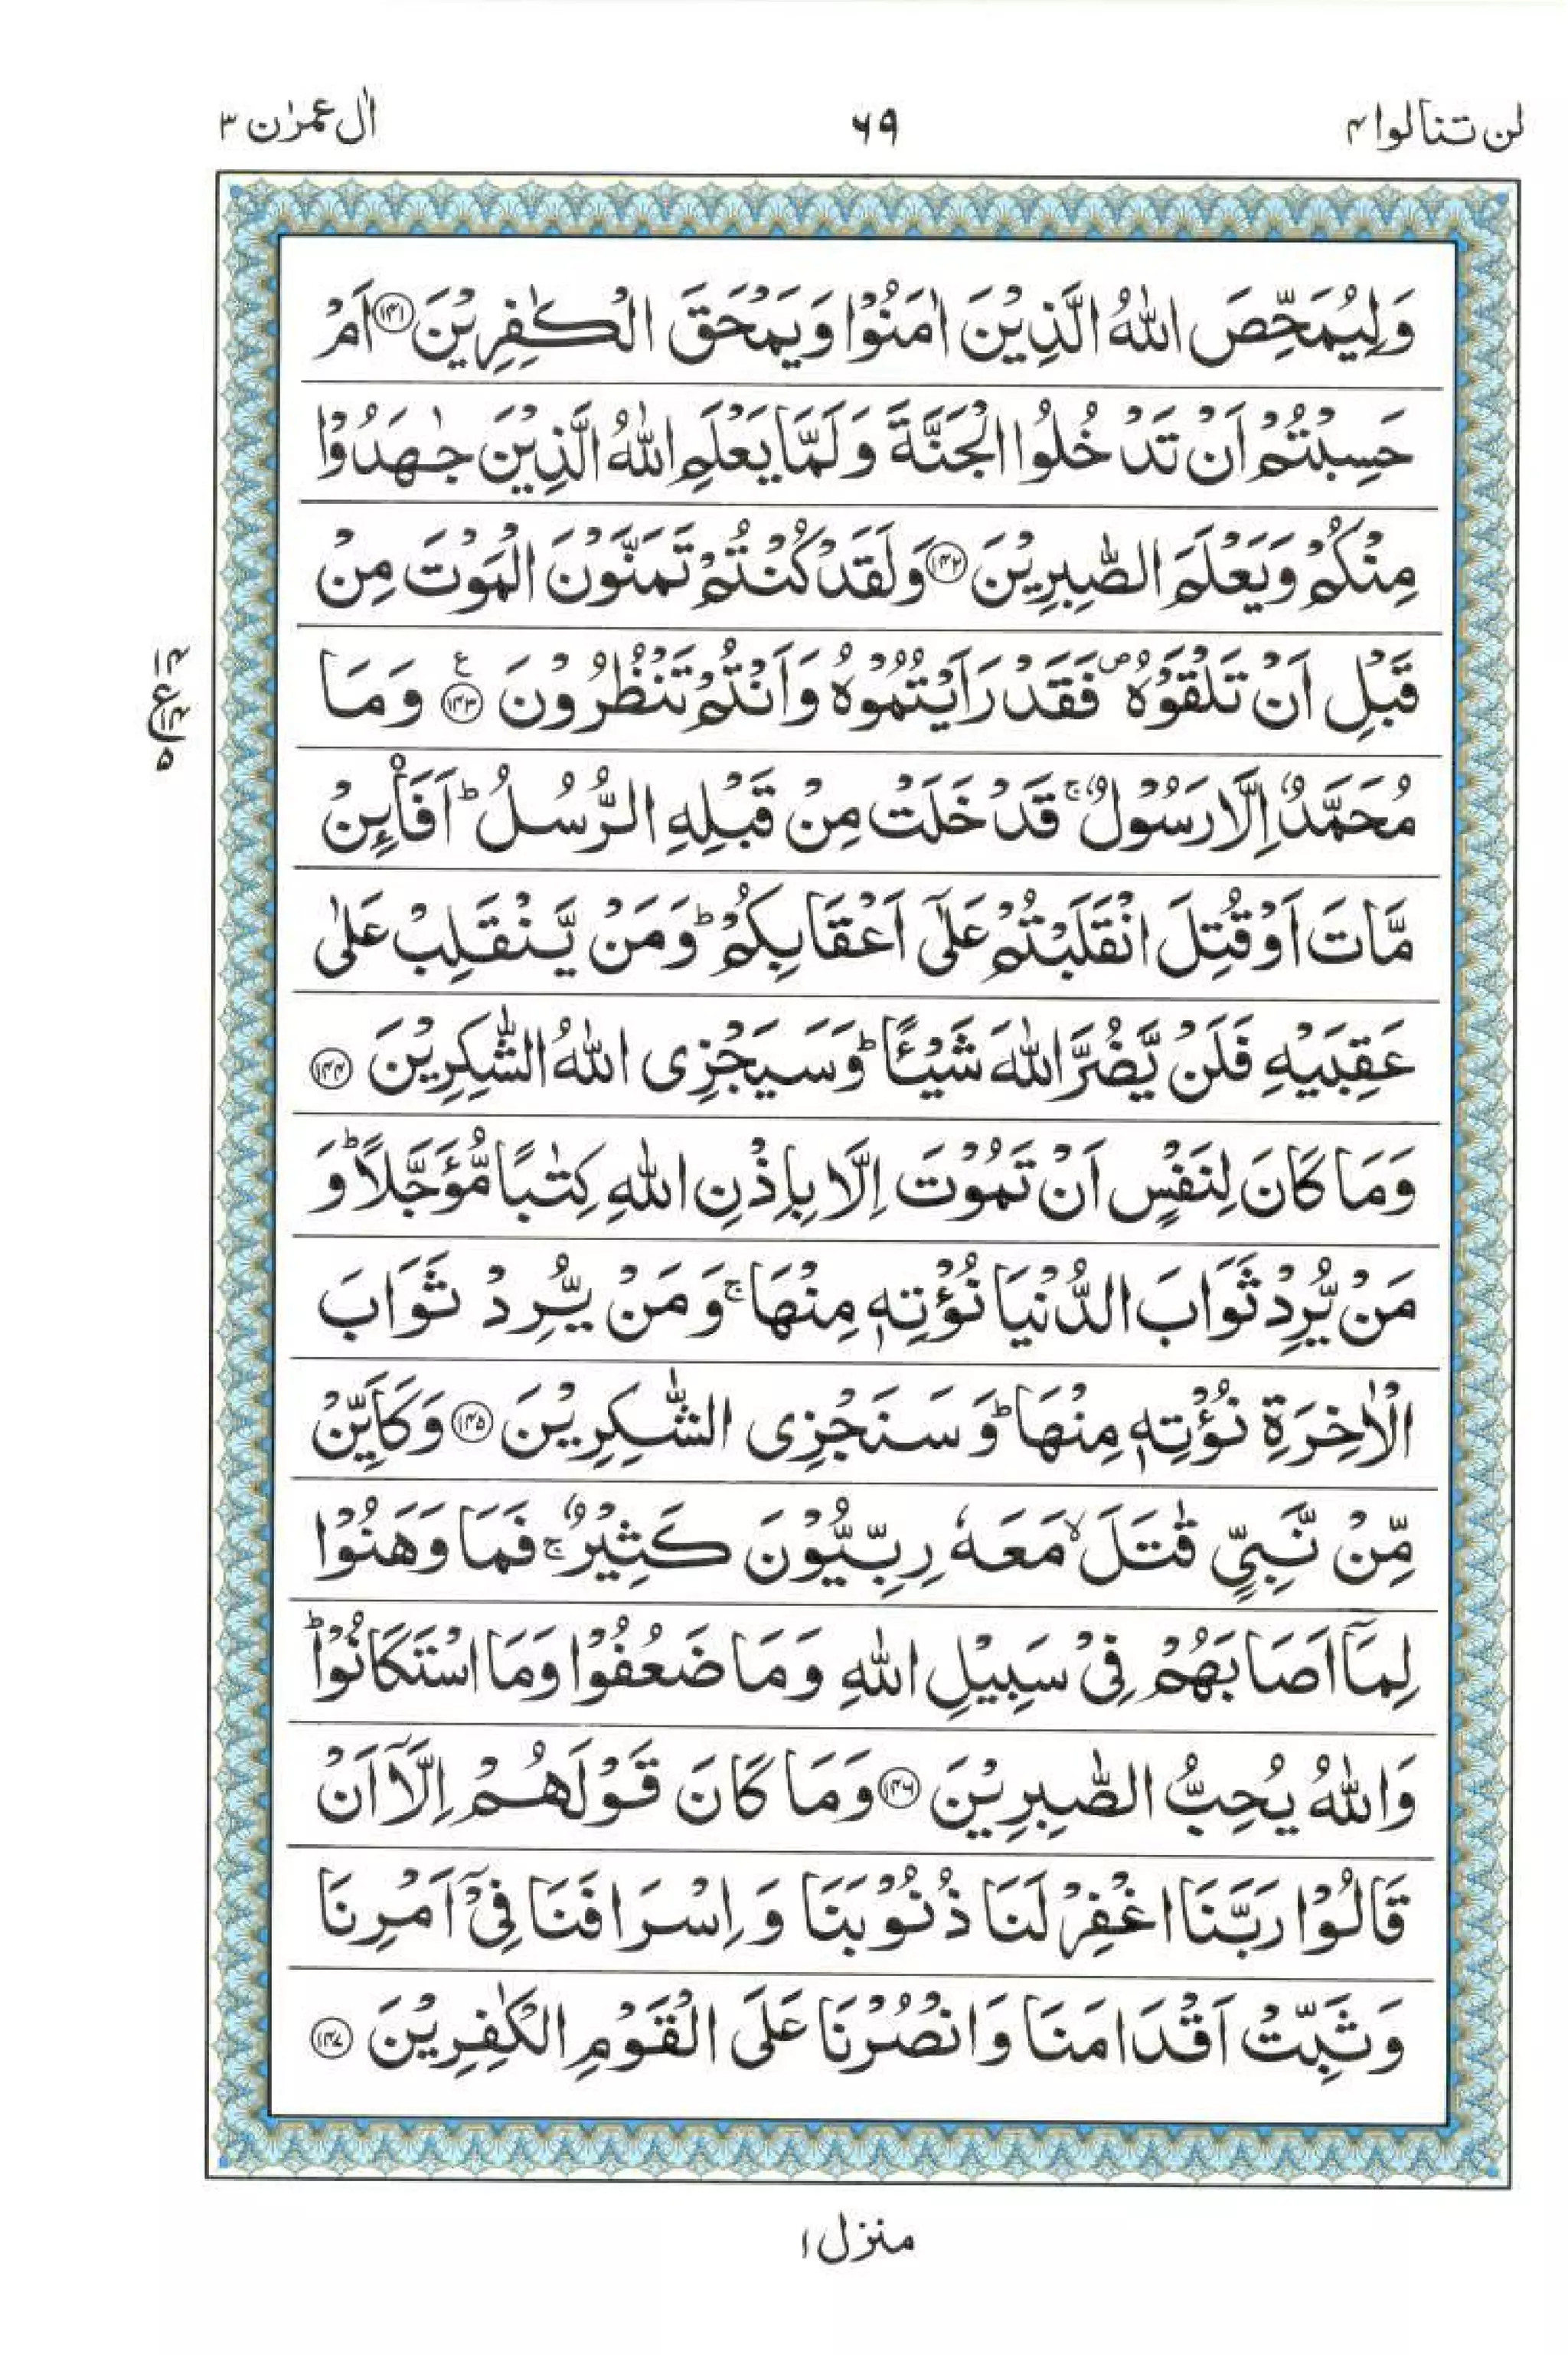 لن تنالوا ۴ ۶۹ اٰل عمرٰن ۳
وَلِيُمَحِّصَ اللّٰهُ الَّذِيْنَ اٰمَنُوْا وَيَمْحَقَ الْكٰفِرِيْنَ ﴿۱۴۱﴾ اَمْ
حَسِبْتُمْ اَنْ تَدْخُلُوا الْجَنَّةَ وَلَمَّا يَعْلَمِ اللّٰهُ الَّذِيْنَ جٰهَدُوْا
مِنْكُمْ وَيَعْلَمَ الصّٰبِرِيْنَ ﴿۱۴۲﴾ وَلَقَدْ كُنْتُمْ تَمَنَّوْنَ الْمَوْتَ مِنْ
قَبْلِ اَنْ تَلْقَوْهُ ۪ فَقَدْ رَاَيْتُمُوْهُ وَاَنْتُمْ تَنْظُرُوْنَ ﴿۱۴۳﴾ ع وَمَا
۱۴ ع ۱۴ ۵
مُحَمَّدٌ اِلَّا رَسُوْلٌ ۚ قَدْ خَلَتْ مِنْ قَبْلِهِ الرُّسُلُ ؕ اَفَا۟ئِنْ
مَّاتَ اَوْ قُتِلَ انْقَلَبْتُمْ عَلٰٓى اَعْقَابِكُمْ ؕ وَمَنْ يَّنْقَلِبْ عَلٰى
عَقِبَيْهِ فَلَنْ يَّضُرَّ اللّٰهَ شَيْـًٔا ؕ وَسَيَجْزِى اللّٰهُ الشّٰكِرِيْنَ ﴿۱۴۴﴾
وَمَا كَانَ لِنَفْسٍ اَنْ تَمُوْتَ اِلَّا بِاِذْنِ اللّٰهِ كِتٰبًا مُّؤَجَّلًا ؕ وَ
مَنْ يُّرِدْ ثَوَابَ الدُّنْيَا نُؤْتِهٖ مِنْهَا ۚ وَمَنْ يُّرِدْ ثَوَابَ
الْاٰخِرَةِ نُؤْتِهٖ مِنْهَا ؕ وَسَنَجْزِى الشّٰكِرِيْنَ ﴿۱۴۵﴾ وَكَاَيِّنْ
مِّنْ نَّبِيٍّ قٰتَلَ ۙ مَعَهٗ رِبِّيُّوْنَ كَثِيْرٌ ۚ فَمَا وَهَنُوْا
لِمَاۤ اَصَابَهُمْ فِيْ سَبِيْلِ اللّٰهِ وَمَا ضَعُفُوْا وَمَا اسْتَكَانُوْا ؕ
وَاللّٰهُ يُحِبُّ الصّٰبِرِيْنَ ﴿۱۴۶﴾ وَمَا كَانَ قَوْلَهُمْ اِلَّاۤ اَنْ
قَالُوْا رَبَّنَا اغْفِرْ لَنَا ذُنُوْبَنَا وَاِسْرَافَنَا فِيْۤ اَمْرِنَا
وَثَبِّتْ اَقْدَامَنَا وَانْصُرْنَا عَلَى الْقَوْمِ الْكٰفِرِيْنَ ﴿۱۴۷﴾
منزل ۱